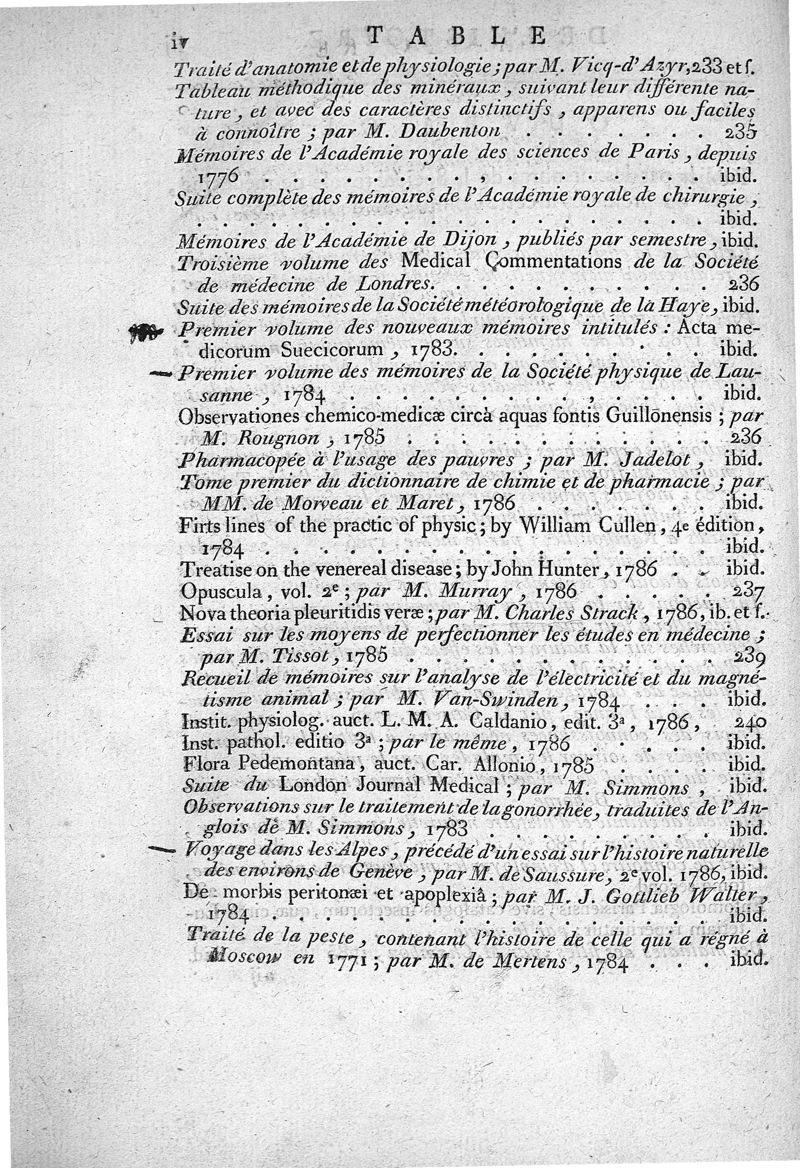 iv T A B L E
Traité d'anatomie et de physiologie ; par M. Vicq-d'Azyr, 233 et ſ.
Tableau méthodique des minéraux, suivant leur différente na-
ture, et avec des caractères distinctifs, apparens ou faciles
à connoître ; par M. Daubenton . . . . . . . 235
Mémoires de l'Académie royale des sciences de Paris, depuis
1776 . . . . . . . . , . . . . . . . . ibid.
Suite complète des mémoires de l'Académie royale de chirurgie,
. . . . . . . . . . . . . . . . . . . . ibid.
Mémoires de l'Académie de Dijon, publiés par semestre, ibid.
Troisième volume des Medical Commentations de la Société
de médecine de Londres. . . . . . . . . . . 236
Suite des mémoires de la Société météorologique de la Haye, ibid.
Premier volume des nouveaux mémoires intitulés : Acta me-
dicorum Suecicorum, 1783. . . . . . . . . . ibid.
Premier volume des mémoires de la Société physique de Lau-
sanne, 1784 . . . . . . . . . , . . . . ibid.
Observationes chemico-medicæ circà aquas fontis Guillonensis ; par
M. Rougnon, 1785 . . . . . . . . . . . . 236
Pharmacopée à l'usage des pauvres ; par M. Jadelot, ibid.
Tome premier du dictionnaire de chimie et de pharmacie ; par
MM. de Morveau et Maret, 1786 . . . . . . . ibid.
Firts lines of the practic of physic ; by William Cullen, 4e édition,
1784 . . . . . . . . . . . . . . . . . ibid.
Treatise on the venereal disease ; by John Hunter, 1786 . . ibid.
Opuscula, vol. 2e ; par M. Murray, 1786 . . . . . 237
Nova theoria pleuritidis veræ ; par M. Charles Strack, 1786, ib. et f.
Essai sur les moyens de perfectionner les études en médecine ;
par M. Tissot, 1785 . . . . . . . . . . . . 239
Recueil de mémoires sur l'analyse de l'électricité et du magné-
tisme animal ; par M. Van-Swinden, 1784 . . . ibid.
Instit. physiolog. auct. L. M. A. Caldanio, edit. 3a, 1786, 240
Inst. pathol. editio 3a ; par le même, 1786 . . . . . ibid.
Flora Pedemontana, auct. Car. Allonio, 1785 . . . . ibid.
Suite du London Journal Medical ; par M. Simmons, ibid.
Observations sur le traitement de la gonorrhée, traduites de l'An-
glois de M. Simmons, 1783 . . . . . . . . . ibid.
Voyage dans les Alpes, précédé d'un essai sur l'histoire naturelle
des environs de Genève, par M. de Saussure, 2e vol. 1786, ibid.
De morbis peritonæi et apoplexiâ ; par M. J. Gottlieb Walter,
1784 . . . . . . . . . . . . . . . . . ibid.
Traité de la peste, contenant l'histoire de celle qui a régné à
Moscow en 1771 ; par M. de Mertens, 1784 . . . ibid.